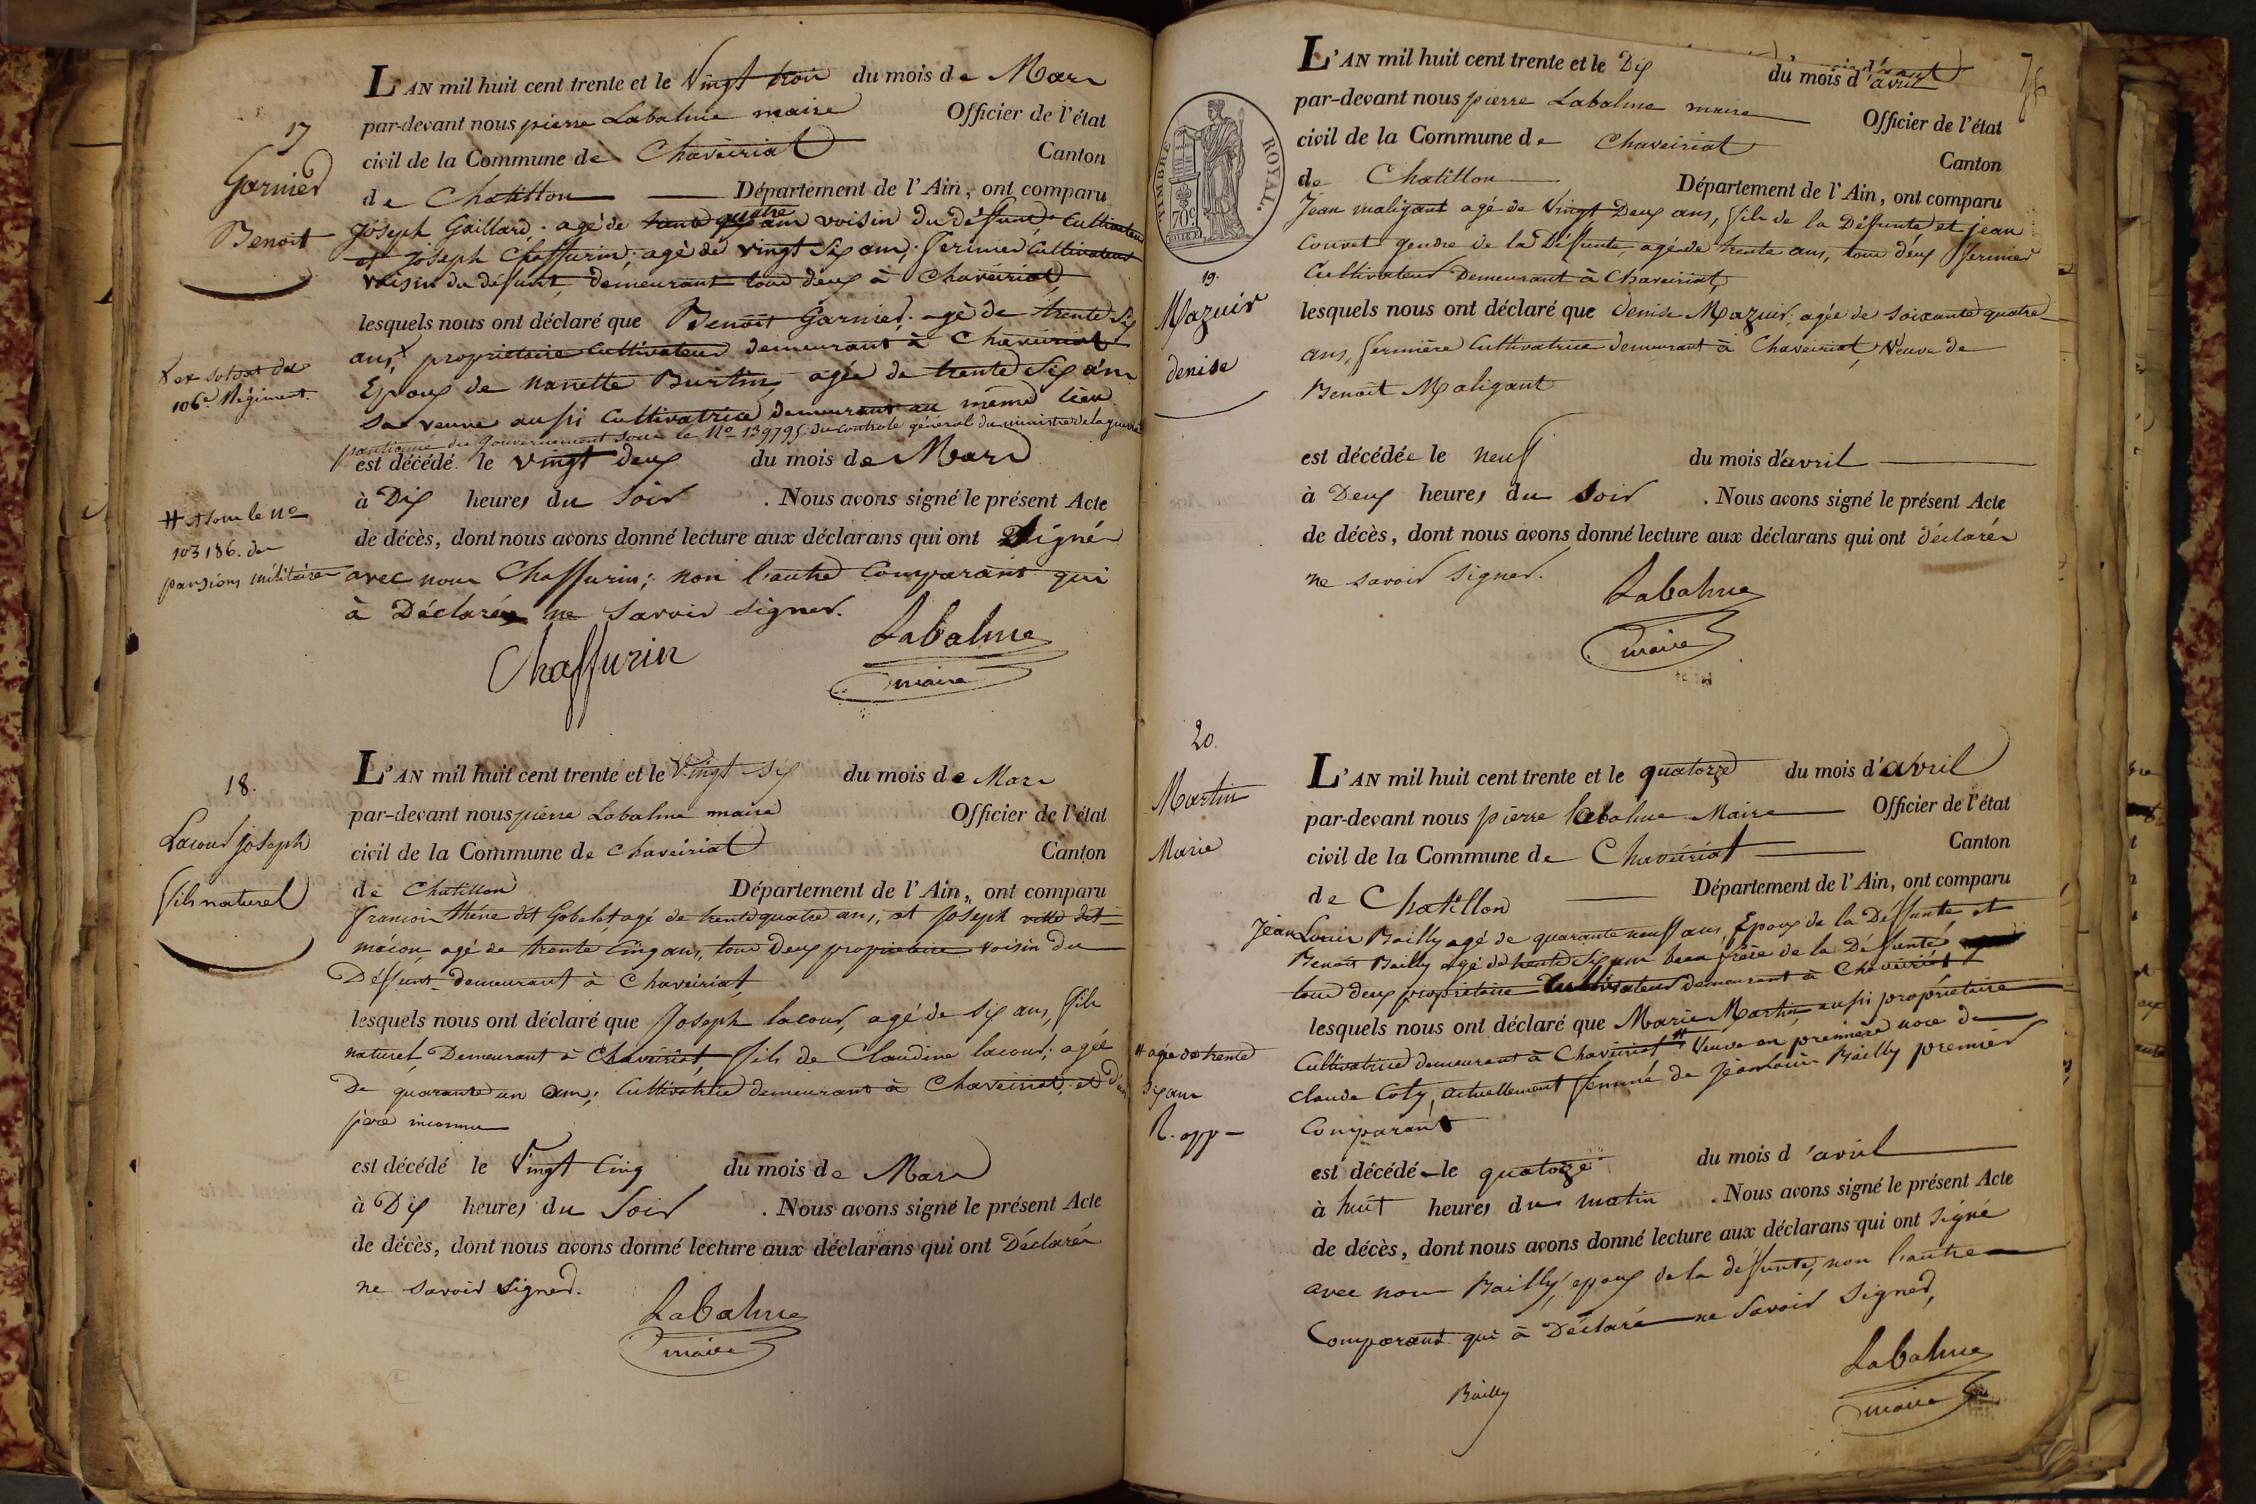 17
Garnier
Benoit
L'AN mil huit cent trente et le Vingt trois du mois de Mars
par-devant nous pierre Labalme maire Officier de l'état
civil de la Commune de Chaveiriat Canton
de Chatillon Département de l'Ain, ont comparu
Joseph Gaillard, agé de trente quatre ans voisin du deffunt, Cultivateur
et joseph Chaffurin, agé de vingt Six ans, fermier Cultivateur
voisin du défunt, demeurant tous deux à Chaveiriat,
lesquels nous ont déclaré que Benoît Garnier, agé de trente Six
ans, x proprietaire Cultivateur demeurant à Chaveiriat
x ex soldat du
106e Régiment.
Epoux de nanette Burtin, agée de trente Six ans
sa veuve aussi Cultivatrice demeurant au même lieu
pentionné du Gouvernement sous le No 139795 du controle général du ministre de la guerre
est décédé le vingt deux du mois de Mars
à Dix heures du Soir . Nous avons signé le présent Acte
# et sous le No
103186. des
pansions militaires
de décès, dont nous avons donné lecture aux déclarans qui ont Signé
avec nous Chaffurin; non l'autre Comparant qui
à Déclaré ne Savoir signer.
Chaffurin
Labalme
maire
18.
Lacour Joseph
fils naturel
L'AN mil huit cent trente et le Vingt Six du mois de Mars
par-devant nous pierre Labalme maire Officier de l'état
civil de la Commune de Chaveiriat Canton
de Chatillon Département de l'Ain, ont comparu
francois thène dit Gobelet agé de trente quatre ans, et Joseph dit
macon, agé de trente Cinq ans, tous Deux proprietaire voisin du
Deffunt demeurant à Chaveiriat,
lesquels nous ont déclaré que Joseph lacour, agé de Six ans, fils
naturel, Demeurant à Chaveiriat, fils de Claudine lacour, agée
De quarante un ans; Cultivatrice demeurant à Chaveiriat, et d'un
père inconnu
est décédé le Vingt Cinq du mois de Mars
à Dix heures du Soir . Nous avons signé le présent Acte
de décès, dont nous avons donné lecture aux déclarans qui ont Déclaré
ne savoir signer.
Labalme
maire
TIMBRE ROYAL.
70c
19.
Mazuir
denise
L'AN mil huit cent trente et le Dix du mois d'avril
par-devant nous pierre Labalme maire Officier de l'état
civil de la Commune de Chaveiriat Canton
de Chatillon Département de l'Ain, ont comparu
Jean maligant agé de Vingt Deux ans, fils de la Deffunte et jean
Couvet gendre de la Deffunte, agé de trente ans, tous deux fermier
Cultivateur Demeurant à Chaveiriat,
lesquels nous ont déclaré que denise Mazuir, agée de soixante quatre
ans, fermière Cultivatrice demeurant à Chaveiriat, Veuve de
Benoît Maligant
est décédée le neuf du mois d'avril
à Deux heures du Soir . Nous avons signé le présent Acte
de décès, dont nous avons donné lecture aux déclarans qui ont déclaré
ne savoir signer.
Labalme
maire
20.
Martin
Marie
L'AN mil huit cent trente et le quatorze du mois d'avril
par-devant nous pierre labalme Maire Officier de l'état
civil de la Commune de Chaveiriat Canton
de Chatillon Département de l'Ain, ont comparu
Jean Louis Bailly agé de quarante neuf ans, Epoux de la Deffunte et
Benoit Bailly agé de trente Six ans beau frère de la Deffunte
tous deux proprietaire Cultivateur demeurant à Chaveiriat
lesquels nous ont déclaré que Marie Martin, aussi proprietaire
Cultivatrice demeurant à Chaveiriat # Veuve en première noce de
# agée de trente
Six ans
R. app
claude Coty, actuellement femme de Jeanlouis Bailly premier
Comparant
est décédée le quatorze du mois d'avril
à huit heures du matin . Nous avons signé le présent Acte
de décès, dont nous avons donné lecture aux déclarans qui ont signé
avec nous Bailly, epoux de la deffunte, non l'autre
Comparant qui à Déclaré ne Savoir Signer,
Labalme
maire
Bailly